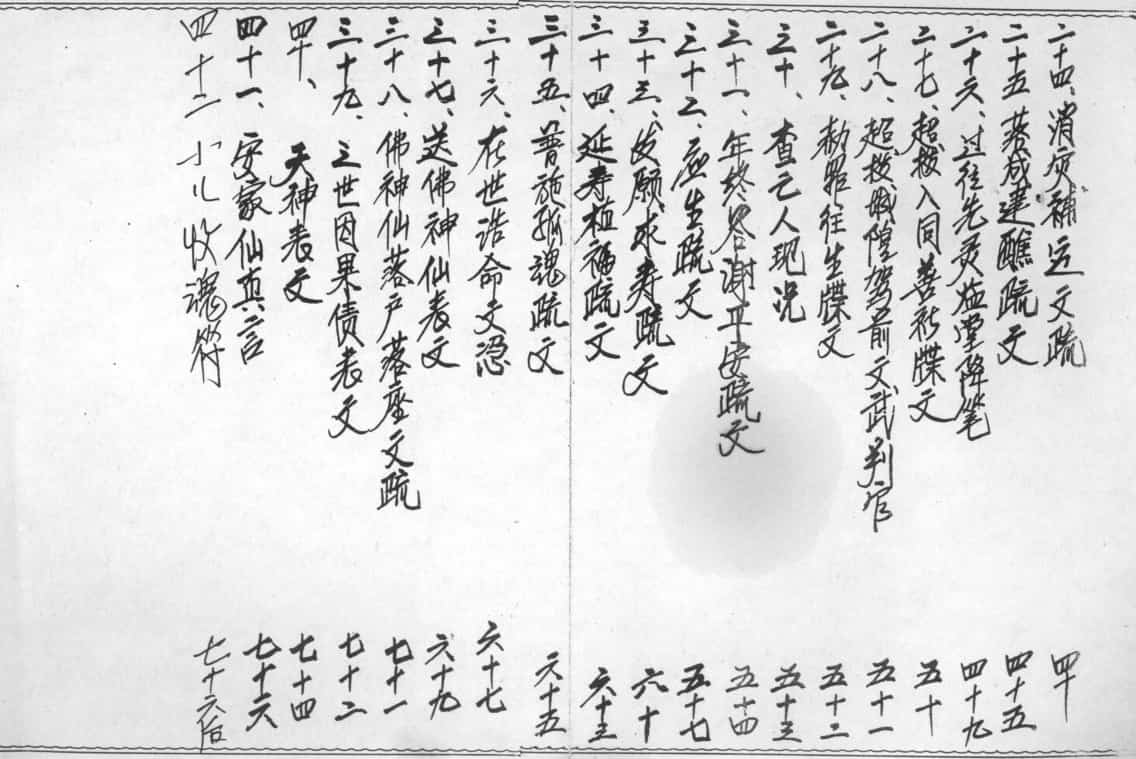 二十四、消灾补运文疏 四十
二十五 落成建醮疏文 四十五
二十六、过往先灵临堂降笔 四十九
二十七、超拔入同善社牒文 五十
二十八、超拔城隍驾前文武判官 五十一
二十九、劾照往生牒文 五十二
三十、查亡人现况 五十三
三十一、年终答谢平安疏文 五十四
三十二、应生疏文 五十七
三十三、发愿求寿疏文 六十
三十四、延寿植福疏文 六十三
三十五、普施孤魂疏文 六十五
三十六、在世诰命文 六十七
三十七、送佛神仙表文 六十九
三十八、佛神仙落户落座文疏 七十一
三十九、三世因果债表文 七十二
四十、天神表文 七十四
四十一、安家仙真言 七十六
四十二 小儿收魂符 七十六后